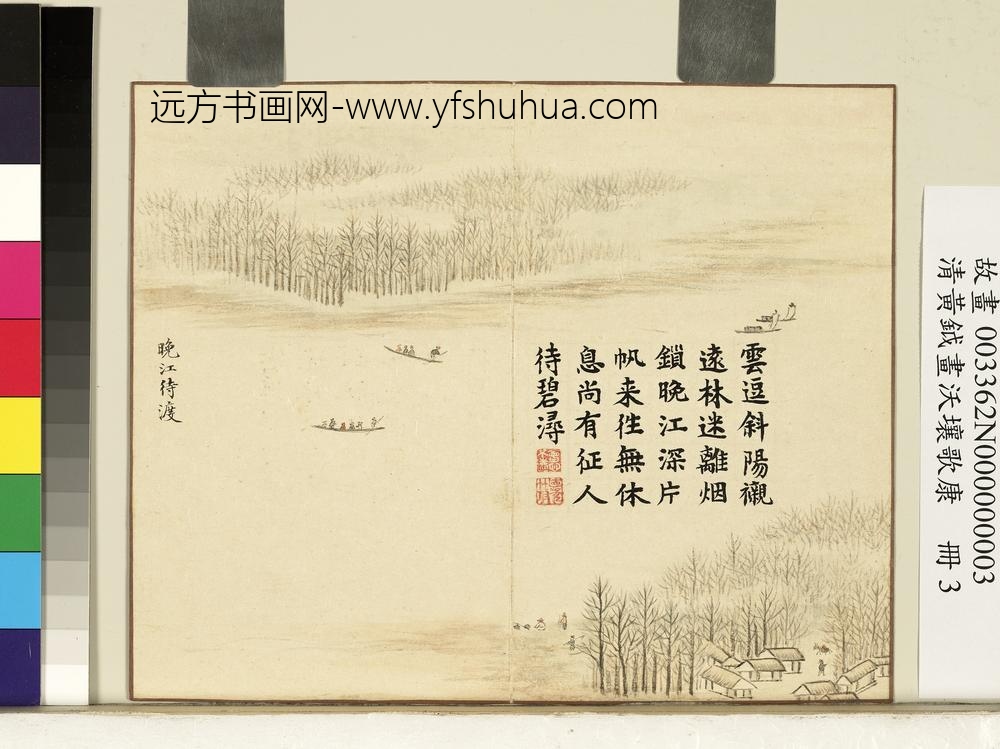 远方书画网-www.yfshuhua.com
故畫 003362N000000003
清黃鉞畫沃壤歌康　冊 3
雲逗斜陽襯
遠林迷離烟
鎖晚江深片
帆来徃無休
息尚有征人
待碧潯
晚江待渡